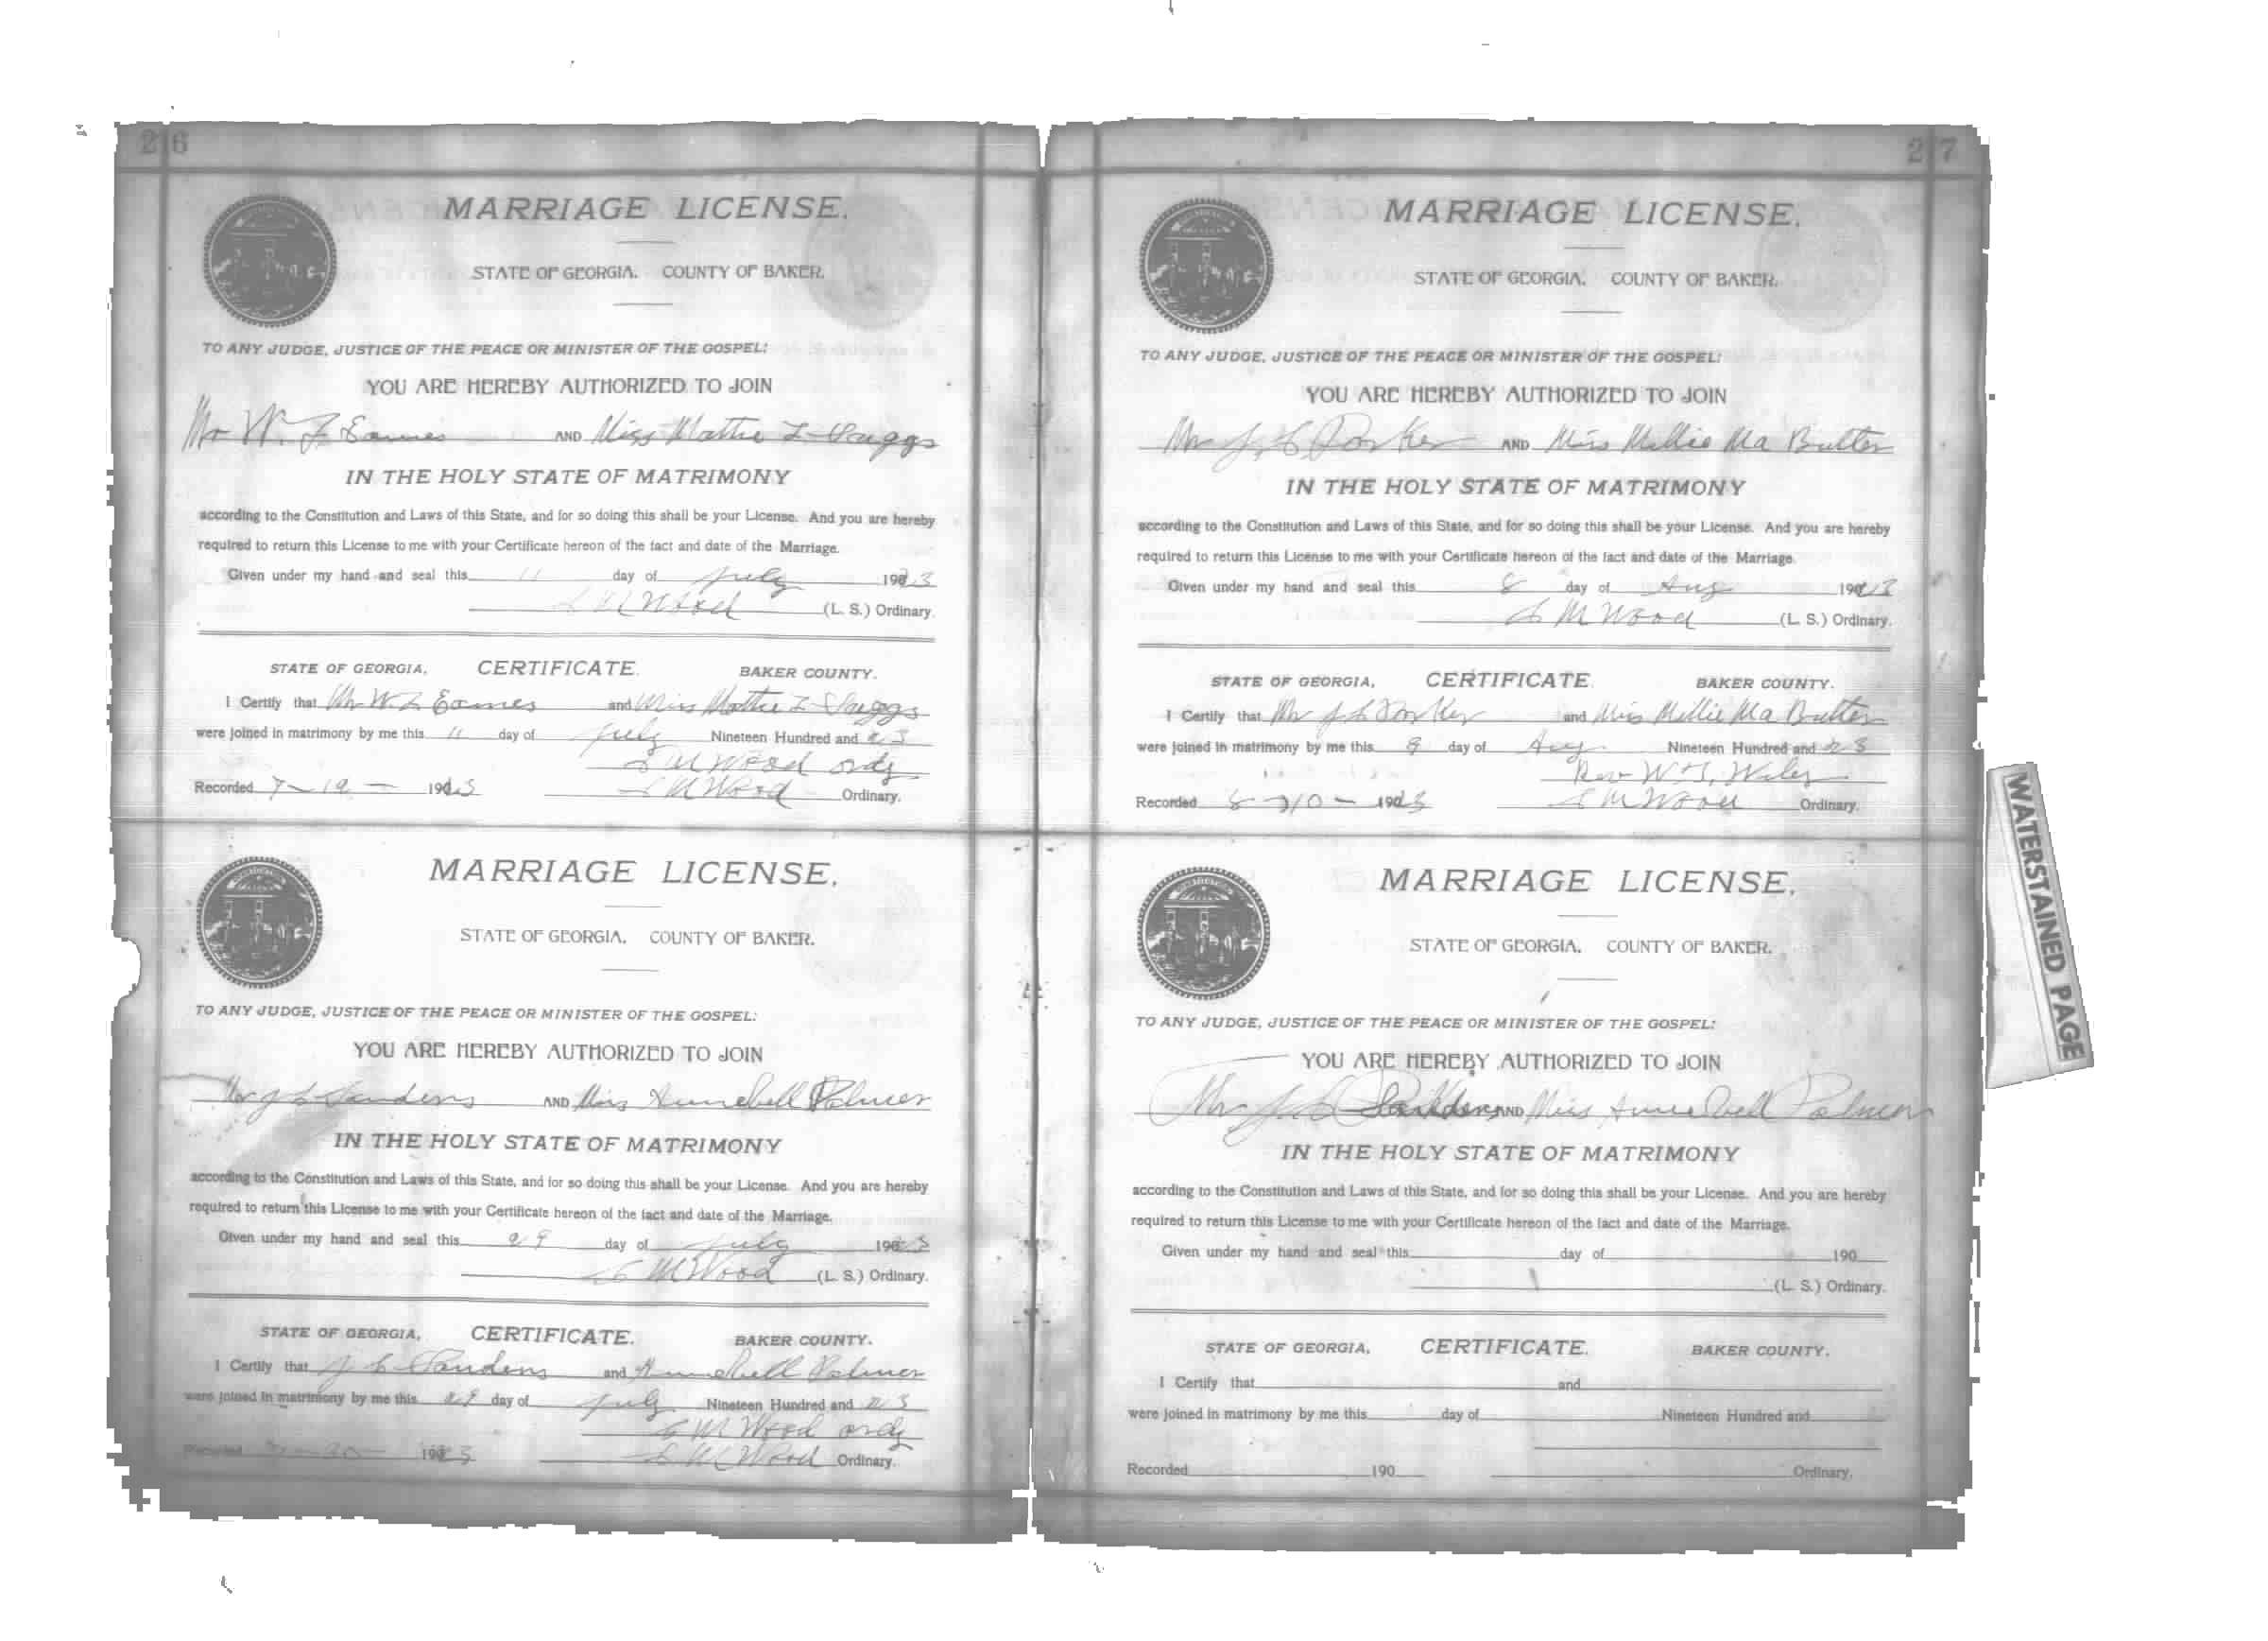 26
MARRIAGE LICENSE.
STATE OF GEORGIA. COUNTY OF BAKER.
TO ANY JUDGE, JUSTICE OF THE PEACE OR MINISTER OF THE GOSPEL:
YOU ARE HEREBY AUTHORIZED TO JOIN
Mr W. Eames AND Miss Mattie
IN THE HOLY STATE OF MATRIMONY
according to the Constitution and Laws of this State, and for so doing this shall be your License. And you are hereby
required to return this License to me with your Certificate hereon of the fact and date of the Marriage.
Given under my hand and seal this 11 day of July 1923
M Wood (L. S.) Ordinary.
STATE OF GEORGIA. CERTIFICATE. BAKER COUNTY.
I Certify that Mr W Eames and Miss Mattie
were joined in matrimony by me this 11 day of July Nineteen Hundred and 23
M Wood ordy
Recorded 7-19- 1923 M Wood Ordinary.
MARRIAGE LICENSE.
STATE OF GEORGIA. COUNTY OF BAKER.
TO ANY JUDGE, JUSTICE OF THE PEACE OR MINISTER OF THE GOSPEL:
YOU ARE HEREBY AUTHORIZED TO JOIN
Mr J Sanders AND Miss Annebell Palmer
IN THE HOLY STATE OF MATRIMONY
according to the Constitution and Laws of this State, and for so doing this shall be your License. And you are hereby
required to return this License to me with your Certificate hereon of the fact and date of the Marriage.
Given under my hand and seal this 29 day of July 1923
M Wood (L. S.) Ordinary.
STATE OF GEORGIA. CERTIFICATE. BAKER COUNTY.
I Certify that J Sanders and Annebell Palmer
were joined in matrimony by me this 29 day of July Nineteen Hundred and 23
M Wood ordy
Recorded 1923 M Wood Ordinary.
27
MARRIAGE LICENSE.
STATE OF GEORGIA. COUNTY OF BAKER.
TO ANY JUDGE, JUSTICE OF THE PEACE OR MINISTER OF THE GOSPEL:
YOU ARE HEREBY AUTHORIZED TO JOIN
Mr J. Porker AND Miss Millie Ma Butler
IN THE HOLY STATE OF MATRIMONY
according to the Constitution and Laws of this State, and for so doing this shall be your License. And you are hereby
required to return this License to me with your Certificate hereon of the fact and date of the Marriage.
Given under my hand and seal this 8 day of Aug 1923
M Wood (L. S.) Ordinary.
STATE OF GEORGIA. CERTIFICATE. BAKER COUNTY.
I Certify that Mr J Porker and Miss Millie Ma Butler
were joined in matrimony by me this 9 day of Aug Nineteen Hundred and 23
Rev W
Recorded 8-10- 1923 M Wood Ordinary.
MARRIAGE LICENSE.
STATE OF GEORGIA. COUNTY OF BAKER.
TO ANY JUDGE, JUSTICE OF THE PEACE OR MINISTER OF THE GOSPEL:
YOU ARE HEREBY AUTHORIZED TO JOIN
Mr J Sanders AND Miss Annebell Palmer
IN THE HOLY STATE OF MATRIMONY
according to the Constitution and Laws of this State, and for so doing this shall be your License. And you are hereby
required to return this License to me with your Certificate hereon of the fact and date of the Marriage.
Given under my hand and seal this day of 190
(L. S.) Ordinary.
STATE OF GEORGIA. CERTIFICATE. BAKER COUNTY.
I Certify that and
were joined in matrimony by me this day of Nineteen Hundred and
Recorded 190 Ordinary.
WATERSTAINED PAGE